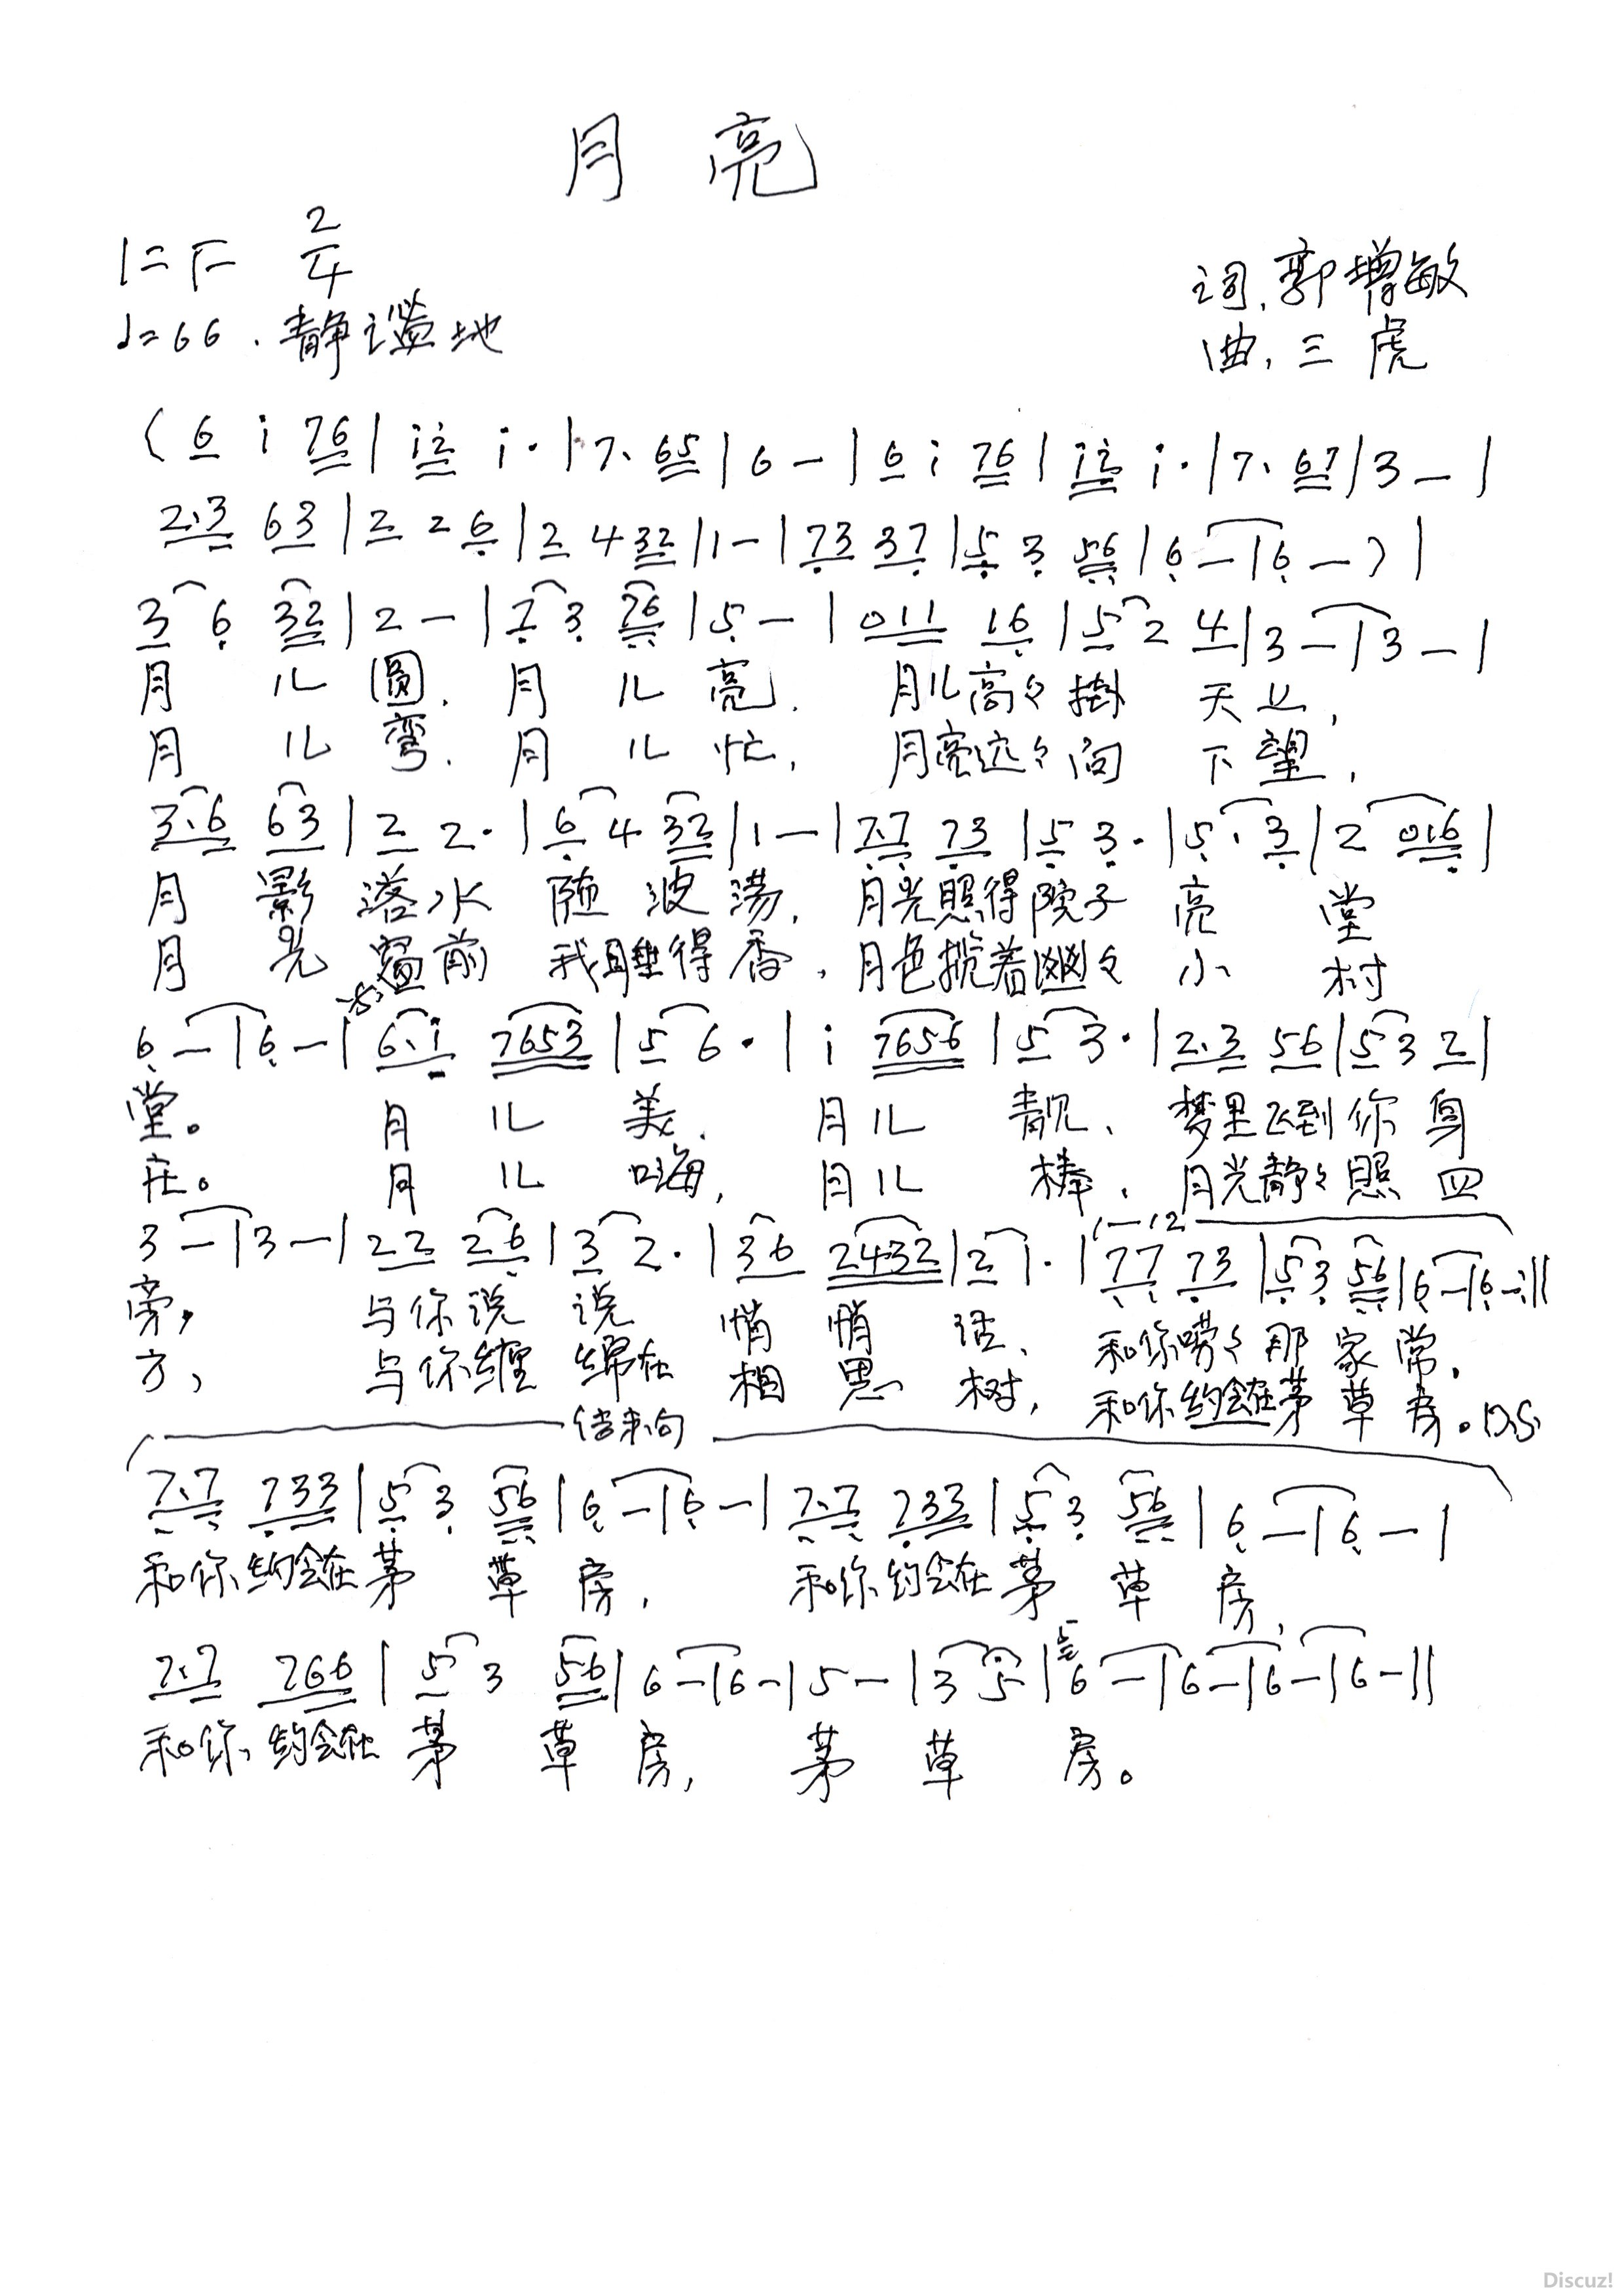 月亮
1=F 2/4
♩=66.静谧地
词.郭增敏
曲.三虎
( 6 i 76 | i2 i· | 7· 65 | 6 - | 6 i 76 | i2 i· | 7· 67 | 3 - |
2·3 63 | 2 2 6 | 2 4 32 | 1 - | 73 37 | 5 3 56 | 6 - | 6 - ) |
3 6 32 | 2 - | 7 3 76 | 5 - | 011 16 | 5 2 4 | 3 - | 3 - |
月儿圆.月儿亮.月儿高々掛天上,
月儿弯.月儿忙,月亮远々向下望,
3·6 63 | 2 2· | 6 4 32 | 1 - | 7·7 73 | 5 3· | 5· 3 | 2 016 |
月影落水随波荡,月光照得院子亮堂
月光窗前我睡得香,月色揽着幽幽々小村
6 - | 6 - | 6·i 7653 | 5 6· | i 7656 | 5 3· | 2·3 56 | 5 3 2 |
堂。月儿美.月儿靓、梦里飞到你身
庄。月儿嗨,月儿棒.月光静々照四
3 - | 3 - | 22 26 | 3 2· | 36 2432 | 2 1· | 1—2 77 73 | 5 3 56 | 6 - | 6 - :||
旁,与你说说悄悄话、和你唠々那家常.
方,与你缠绵在相思树,和你约会在茅草房。D.S.
结束句
7·7 733 | 5 3 56 | 6 - | 6 - | 7·7 733 | 5 3 56 | 6 - | 6 - |
和你约会在茅草房,和你约会在茅草房,
7·7 766 | 5 3 56 | 6 - | 6 - | 5 - | 3 5 | 5 6 - | 6 - | 6 - | 6 - ||
和你约会在茅草房,茅草房。
Discuz!